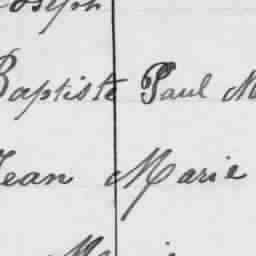 Joseph
Baptiste Paul M
Jean Marie